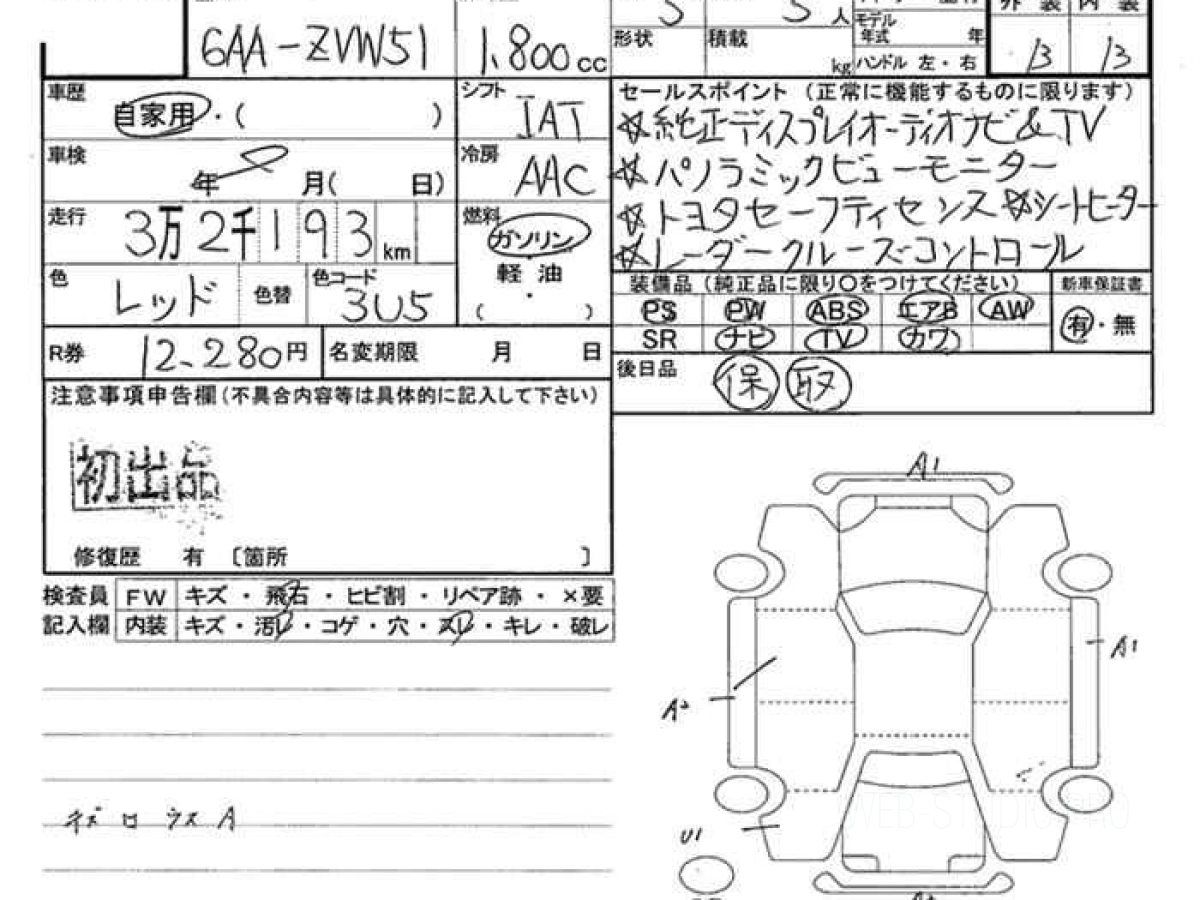 5 5人
モデル年式 年
外装 内装
6AA-ZVW51
1,800cc
形状 積載 kg
ハンドル 左・右
B B
車歴 自家用・( )
シフト IAT
セールスポイント (正常に機能するものに限ります)
☆純正ディスプレイオーディオナビ&TV
車検 年 月( 日)
冷房 AAC
☆パノラミックビューモニター
走行 3万2千193km
燃料 ガソリン
☆トヨタセーフティセンス ☆シートヒーター
軽・油
( )
☆レーダークルーズコントロール
色 レッド 色替 色コード 3U5
装備品 (純正品に限り○をつけてください) 新車保証書
PS PW ABS エアB AW 有・無
SR ナビ TV カワ
R券 12,280円 名変期限 月 日
後日品 保 取
注意事項申告欄(不具合内容等は具体的に記入して下さい)
初出品
修復歴 有 〔箇所 〕
検査員 FW キズ・飛石・ヒビ割・リペア跡・×要
記入欄 内装 キズ・汚レ・コゲ・穴・スレ・キレ・破レ
A1
A1
A2
WEB-STUDIO.PRO
U1